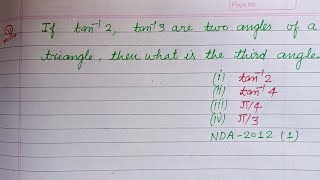 Page No.
Q. If tan⁻¹2, tan⁻¹3 are two angles of a
triangle, then what is the third angle.
(i) tan⁻¹2
(ii) tan⁻¹4
(iii) π/4
(iv) π/3
NDA-2012 (1)